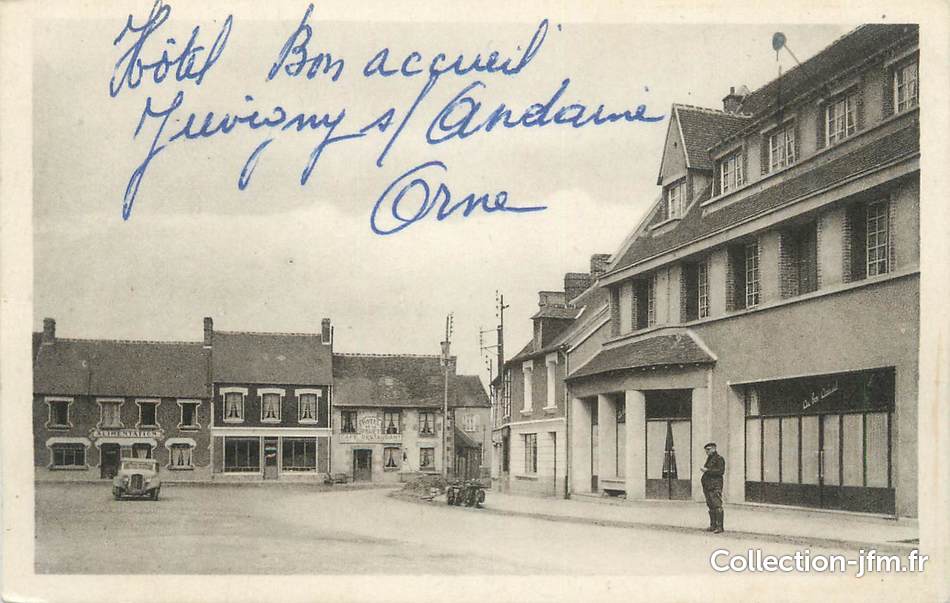 Hôtel Bon accueil
Juvigny s/ Andaine
Orne
Au Bon Accueil
ALIMENTATION
HOTEL
CAFÉ RESTAURANT
Collection-jfm.fr